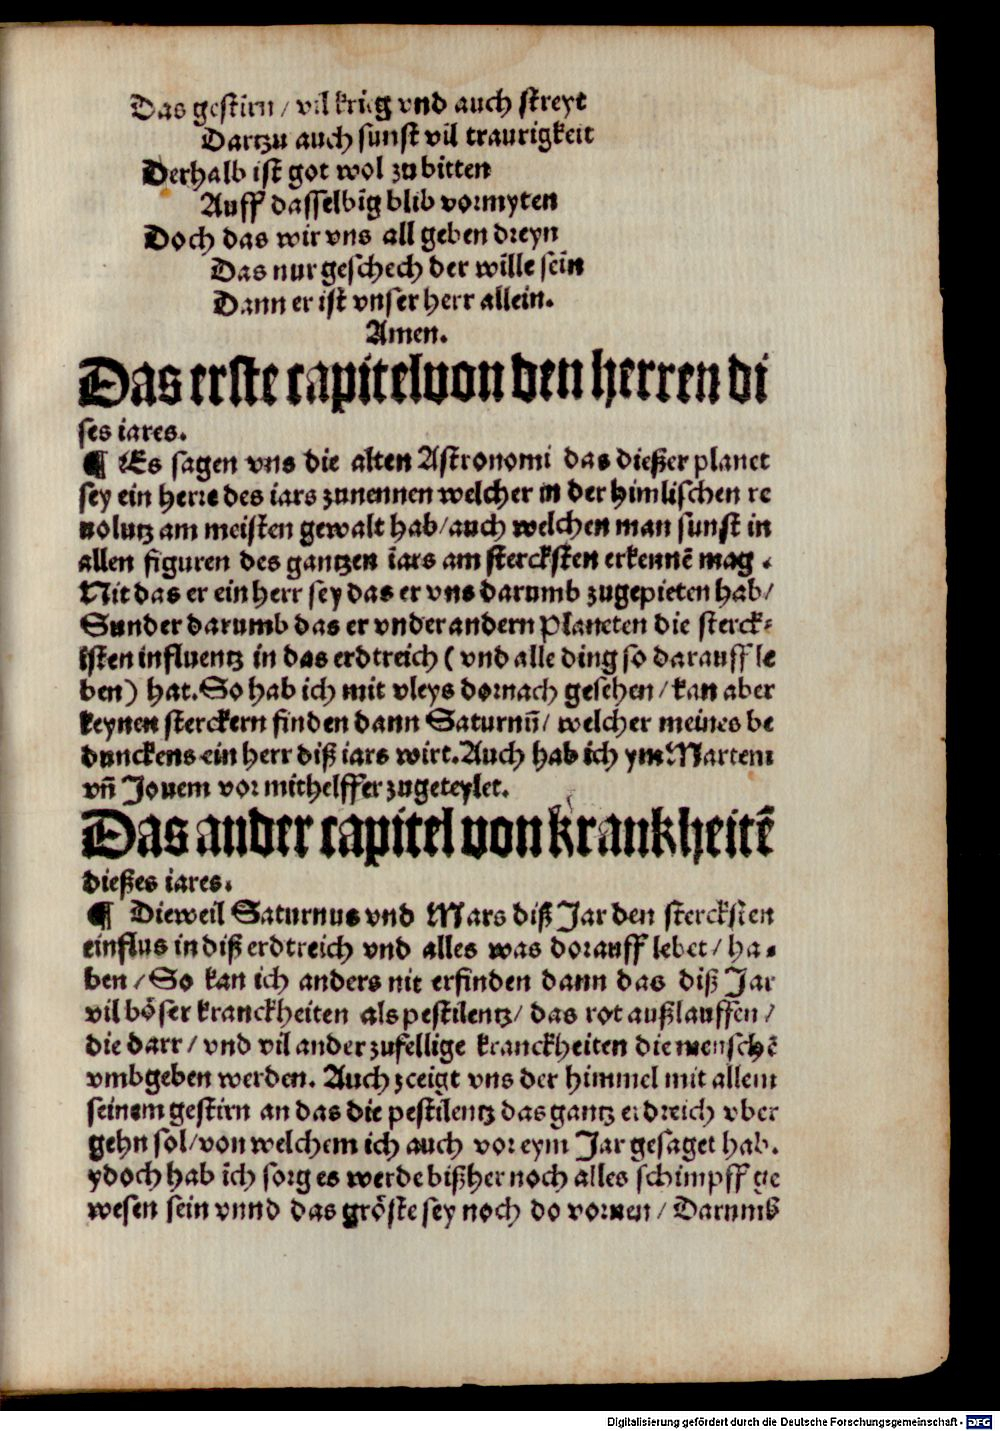 Das gestirn / vil krieg vnd auch streyt
Dartzu auch sunst vil traurigkeit
Derhalb ist got wol zu bitten
Auff dasselbig blib vormyten
Doch das wir vns all geben dreyn
Das nur geschech der wille sein
Dann er ist vnser herr allein.
Amen.
Das erste capitel von den herren di
ses iares.
¶ Es sagen vns die alten Astronomi das dießer planet
sey ein herre des iars zunennen welcher in der himlischen re
uolutz am meisten gewalt hab/auch welchen man sunst in
allen figuren des gantzen iars am stercksten erkennē mag .
Nit das er ein herr sey das er vns darumb zugepieten hab/
Sunder darumb das er vnder andern Planeten die sterck⸗
isten influentz in das erdtreich ( vnd alle ding so darauff le
ben) hat. So hab ich mit vleys dornach gesehen / kan aber
keynen sterckern finden dann Saturnū/ welcher meines be
dunckens ein herr diß iars wirt. Auch hab ich ym Martem
vn̄ Jouem vor mithelffer zugeteylet.
Das ander capitel von krankheitē
dießes iares.
¶ Dieweil Saturnus vnd Mars diß Jar den stercksten
einflus in diß erdtreich vnd alles was dorauff lebet / ha⸗
ben / So kan ich anders nit erfinden dann das diß Jar
vil böser kranckheiten als pestilentz/ das rot außlauffen /
die darr / vnd vil ander zufellige kranckheiten die menschē
vmbgeben werden. Auch zceigt vns der himmel mit allem
seinem gestirn an das die pestilentz das gantz erdreich vber
gehn sol/von welchem ich auch vor eym Jar gesaget hab.
ydoch hab ich sorg es werde bißher noch alles schimpff ge
wesen sein vnnd das gröste sey noch do vornen / Darumb
Digitalisierung gefördert durch die Deutsche Forschungsgemeinschaft - DFG